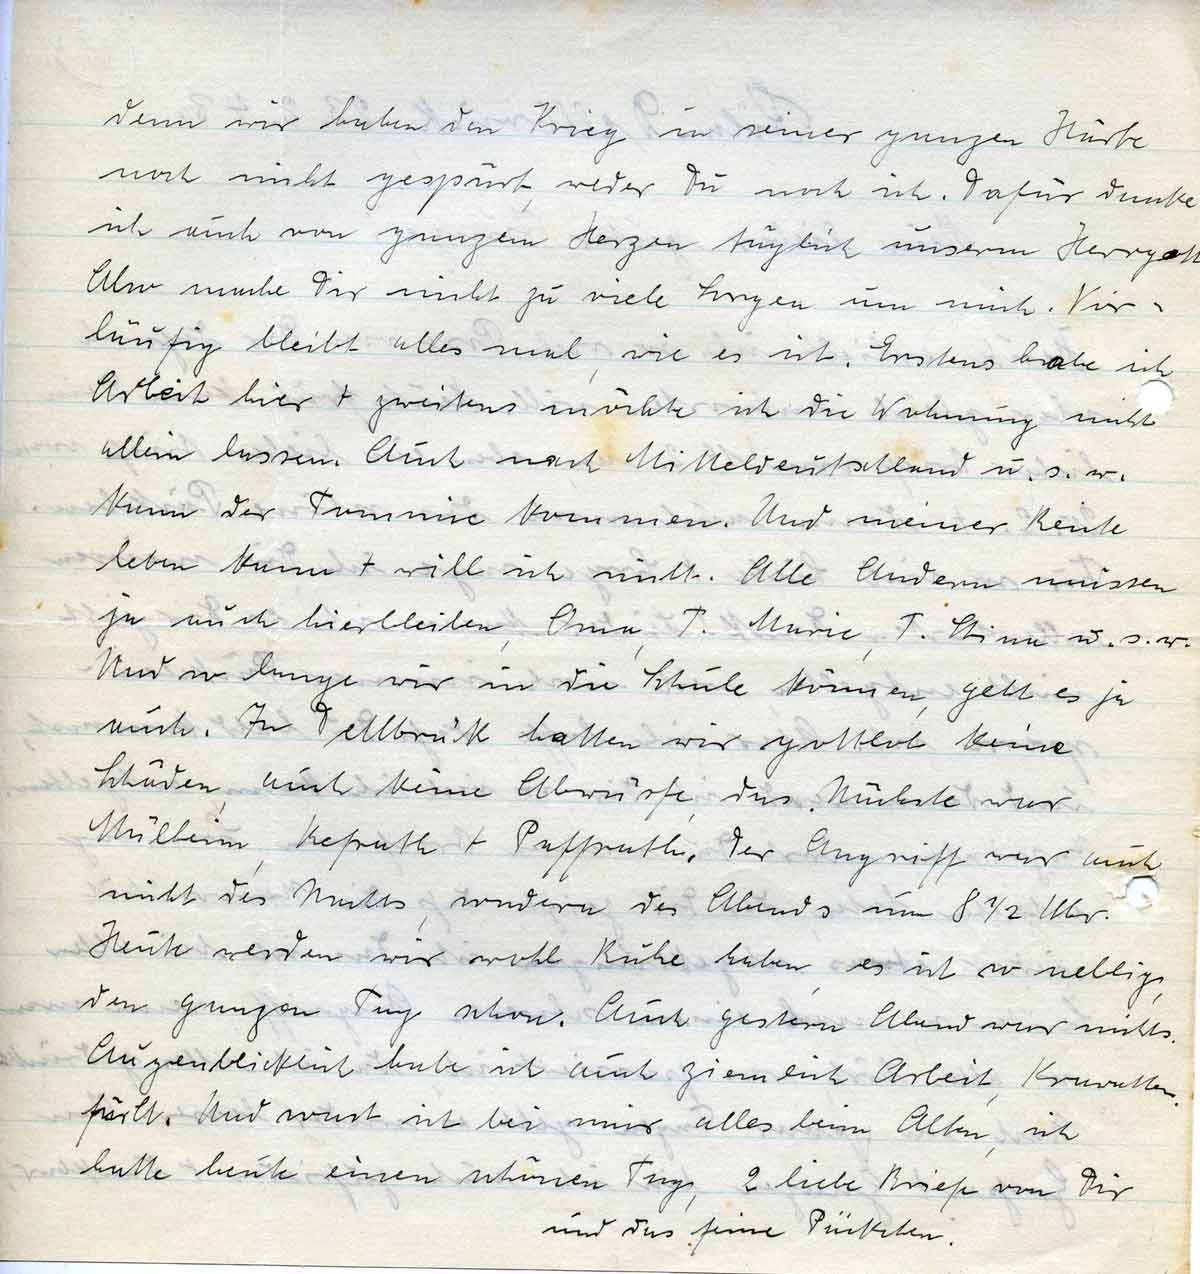 denn wir haben den Krieg in seiner ganzen Härte
noch nicht gespürt, weder Du noch ich. Dafür danke
ich auch von ganzem Herzen täglich unserm Herrgott
Also mache Dir nicht zu viele Sorgen um mich. Vor-
läufig bleibt alles mal, wie es ist. Erstens habe ich
Arbeit hier + zweitens möchte ich die Wohnung nicht
allein lassen. Auch nach Mitteldeutschland u. s. w.
kann der Tommie kommen. Und meiner Rente
leben kann + will ich nicht. Alle Andern müssen
ja auch hierbleiben, Oma, T. Marie, T. Stina u. s. w.
Und so lange wir in die Schule können, geht es ja
auch. In Dellbrück hatten wir gottlob keine
Schäden, auch keine Abwürfe, das Nächste war
Mülheim, Refrath + Paffrath. Der Angriff war auch
nicht des Nachts, sondern des Abends um 8 1/2 Uhr.
Heute werden wir wohl Ruhe haben, es ist so neblig,
den ganzen Tag schon. Auch gestern Abend war nichts.
Augenblicklich habe ich auch ziemlich Arbeit, Krawatten.
Und sonst ist bei mir alles beim Alten, ich
hatte heute einen schönen Tag, 2 liebe Briefe von Dir
und das feine Päckchen.